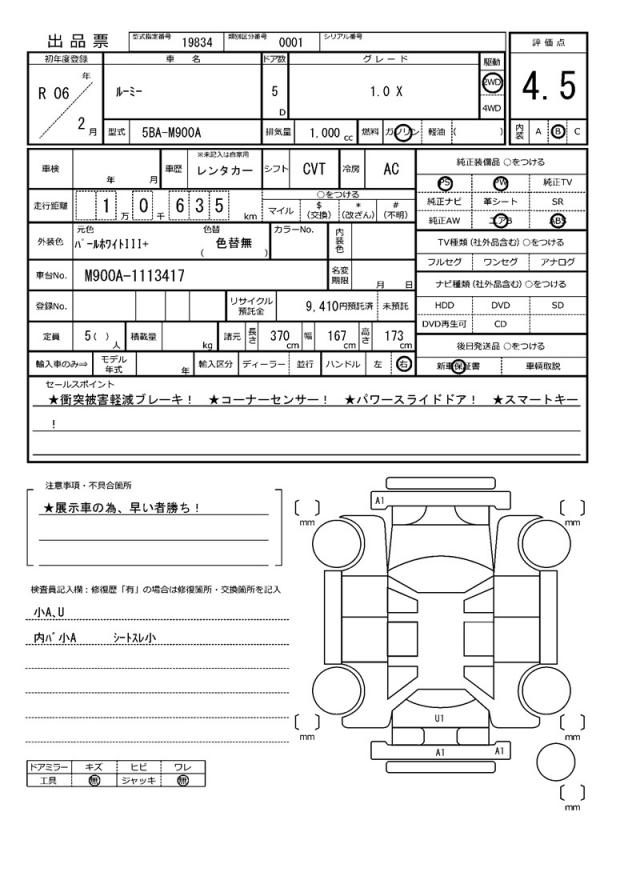 出品票 型式指定番号 19834 類別区分番号 0001 シリアル番号
評価点
4.5
初年度登録 車名 ドア数 グレード 駆動
R 06 年 2 月
ルーミー 5 D 1.0 X 2WD
4WD
型式 5BA-M900A 排気量 1.000 cc 燃料 ガソリン 軽油 ( )
内装 A B C
車検 年 月 車歴 ※未記入は自家用 レンタカー シフト CVT 冷房 AC
純正装備品 ○をつける
PS PW 純正TV
純正ナビ 革シート SR
純正AW エアB ABS
走行距離 1 万 0 千 6 3 5 km
○をつける
マイル $ (交換) * (改ざん) # (不明)
外装色 元色 パールホワイトIII+ 色替 ( 色替無 ) カラーNo. 内装色
TV種類 (社外品含む) ○をつける
フルセグ ワンセグ アナログ
車台No. M900A-1113417 名変期限 月 日
ナビ種類 (社外品含む) ○をつける
HDD DVD SD
DVD再生可 CD
登録No. リサイクル預託金 9,410円預託済 未預託
定員 5( ) 人 積載量 kg 諸元 長さ 370 cm 幅 167 cm 高さ 173 cm
後日発送品 ○をつける
新車保証書 車輌取説
輸入車のみ⇒ モデル年式 年 輸入区分 ディーラー 並行 ハンドル 左 右
セールスポイント
★衝突被害軽減ブレーキ! ★コーナーセンサー! ★パワースライドドア! ★スマートキー
!
注意事項・不具合箇所
★展示車の為、早い者勝ち!
検査員記入欄:修復歴「有」の場合は修復箇所・交換箇所を記入
小A、U
内バ小A シートスレ小
ドアミラー キズ ヒビ ワレ
工具 無 ジャッキ 無
A1
[ ] mm
[ ] mm
U1
[ ] mm
[ ] mm
A1 A1
[ ] mm